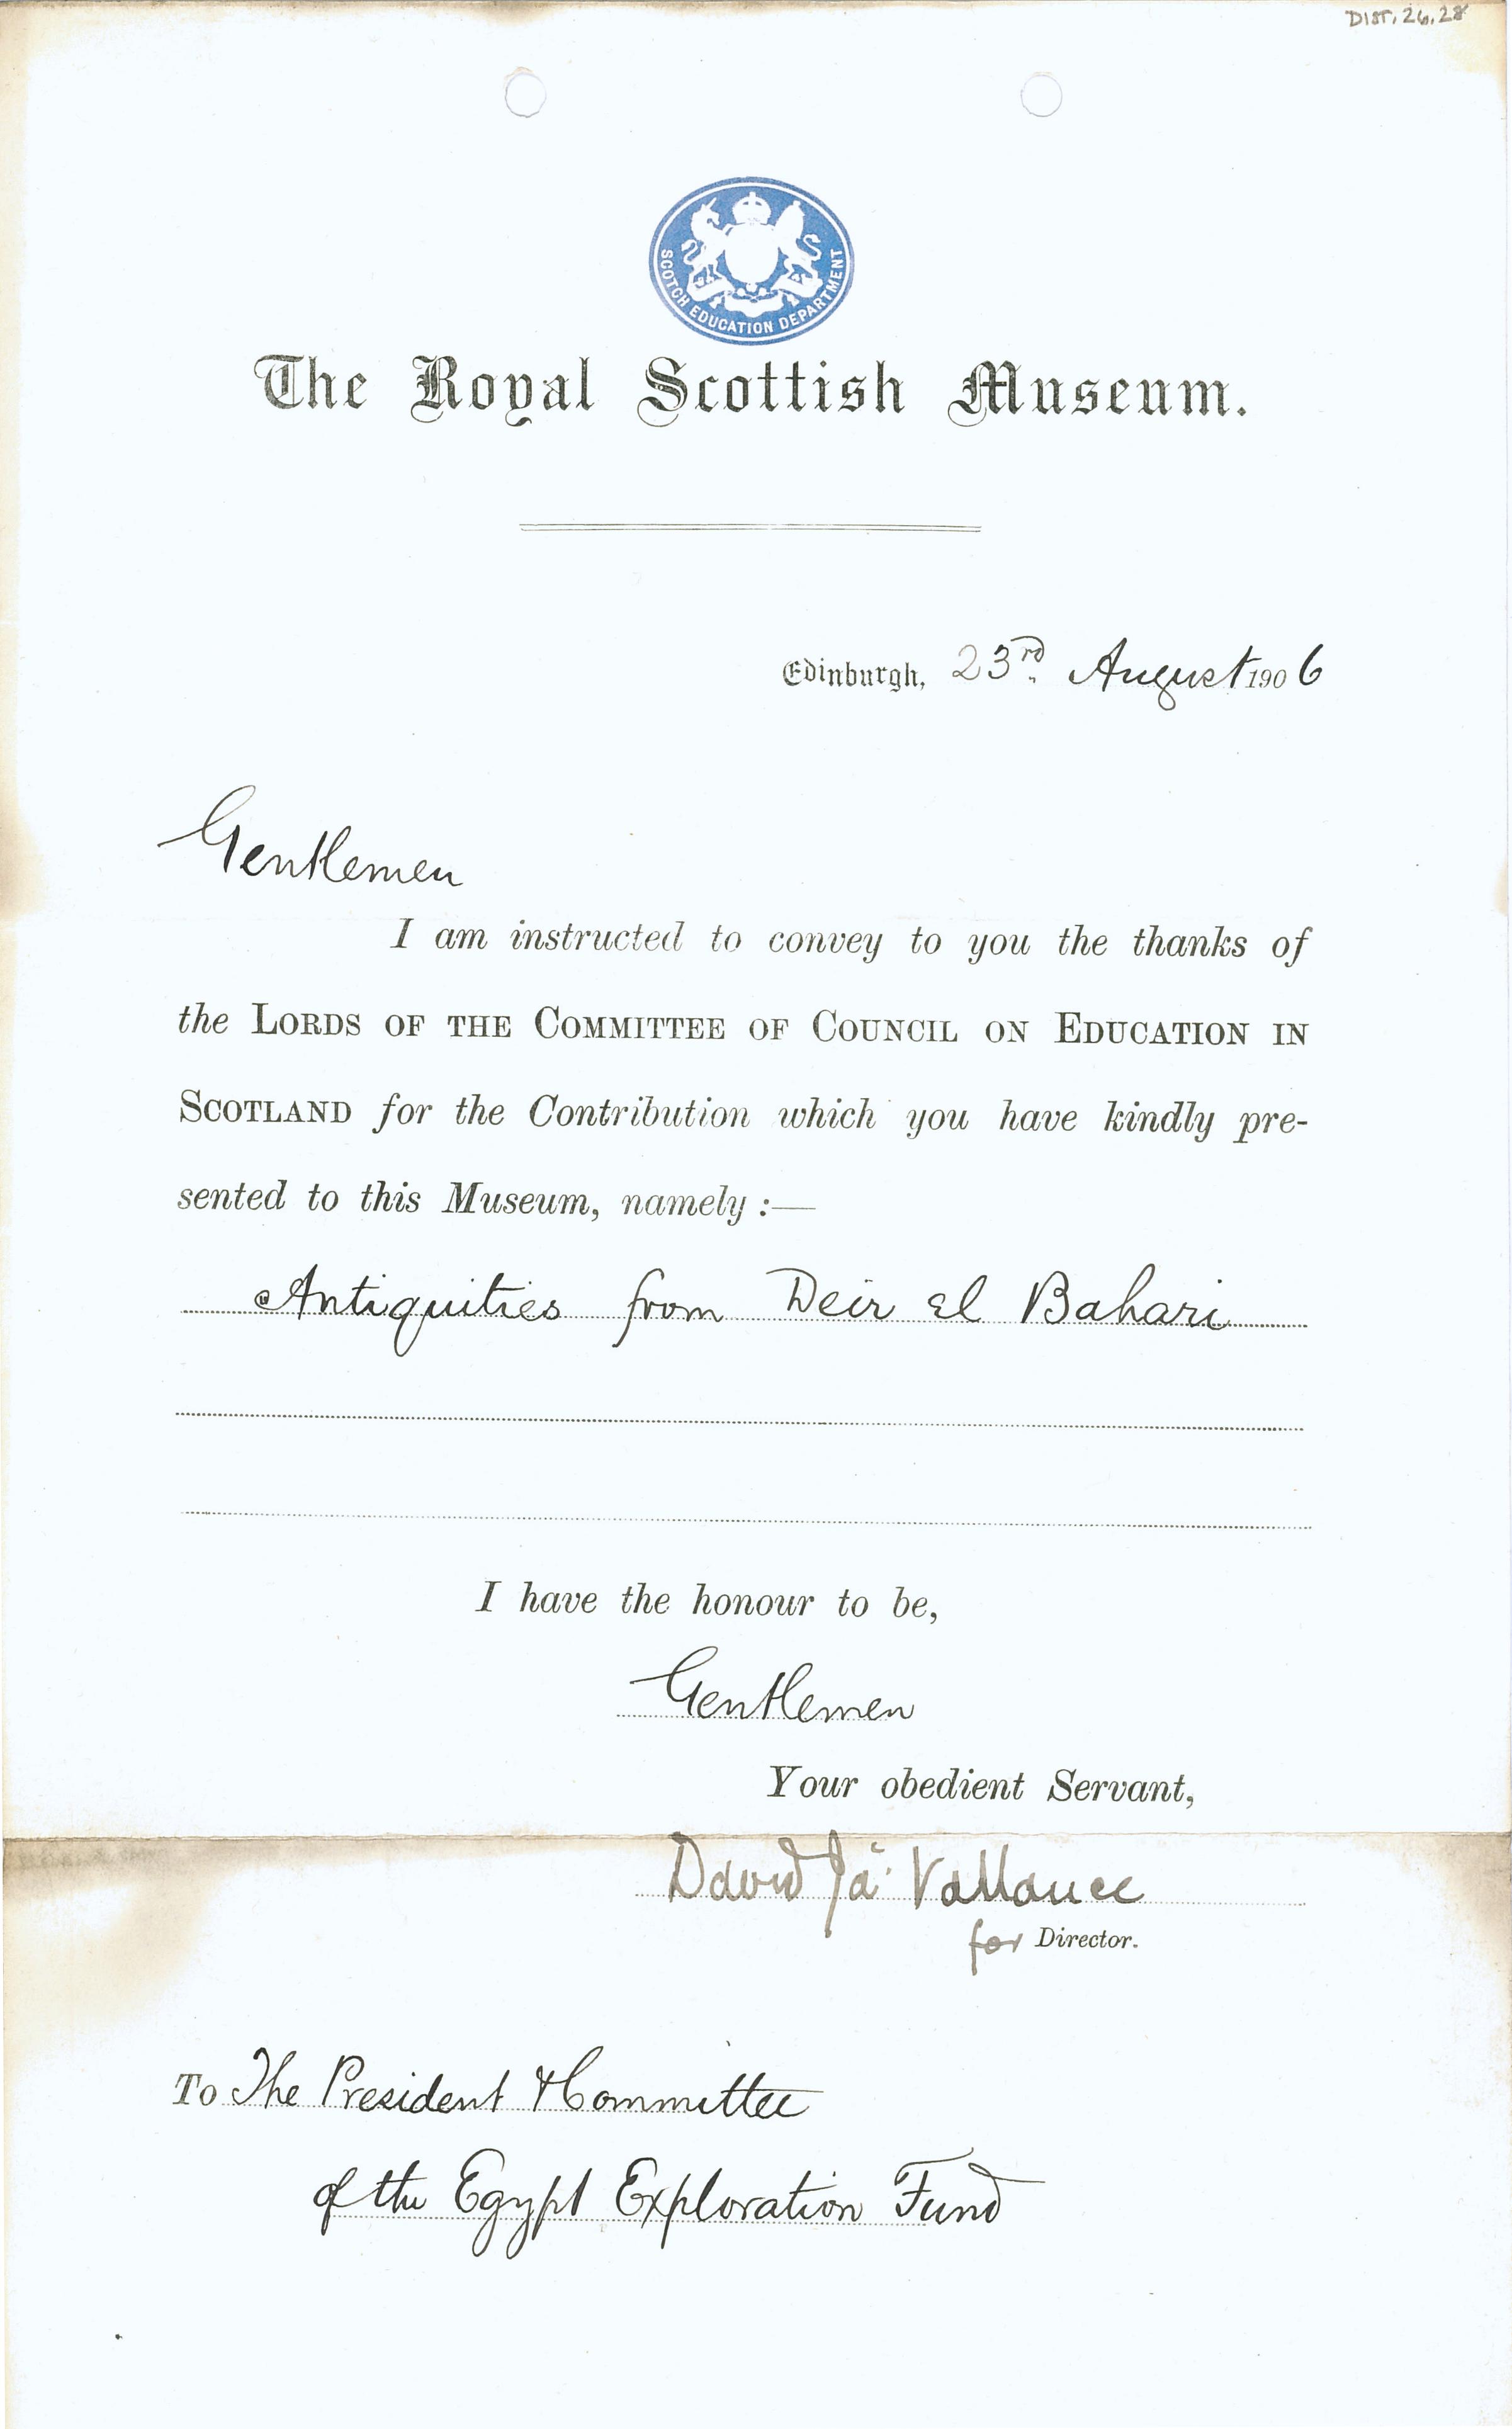 DIST. 26.28
SCOTCH EDUCATION DEPARTMENT
The Royal Scottish Museum.
Edinburgh, 23rd. August 1906
Gentlemen
I am instructed to convey to you the thanks of
the LORDS OF THE COMMITTEE OF COUNCIL ON EDUCATION IN
SCOTLAND for the Contribution which you have kindly pre-
sented to this Museum, namely :—
Antiquities from Deir el Bahari
I have the honour to be,
Gentlemen
Your obedient Servant,
David Ja. Vallance
for Director.
To The President & Committee
of the Egypt Exploration Fund